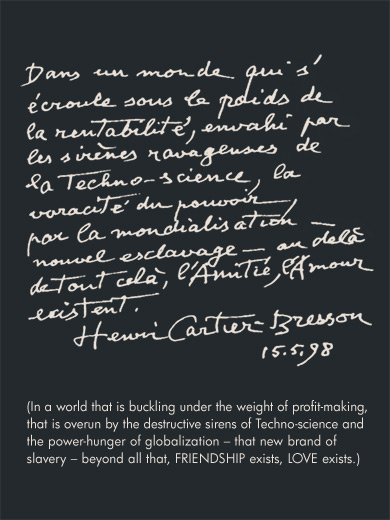 Dans un monde qui s'
écroule sous le poids de
la rentabilité, envahi par
les sirènes ravageuses de
la Techno-science, la
voracité du pouvoir,
par la mondialisation —
nouvel esclavage — au delà
de tout celà, l'Amitié, l'Amour
existent.
Henri Cartier-Bresson
15.5.98
(In a world that is buckling under the weight of profit-making,
that is overun by the destructive sirens of Techno-science and
the power-hunger of globalization – that new brand of
slavery – beyond all that, FRIENDSHIP exists, LOVE exists.)